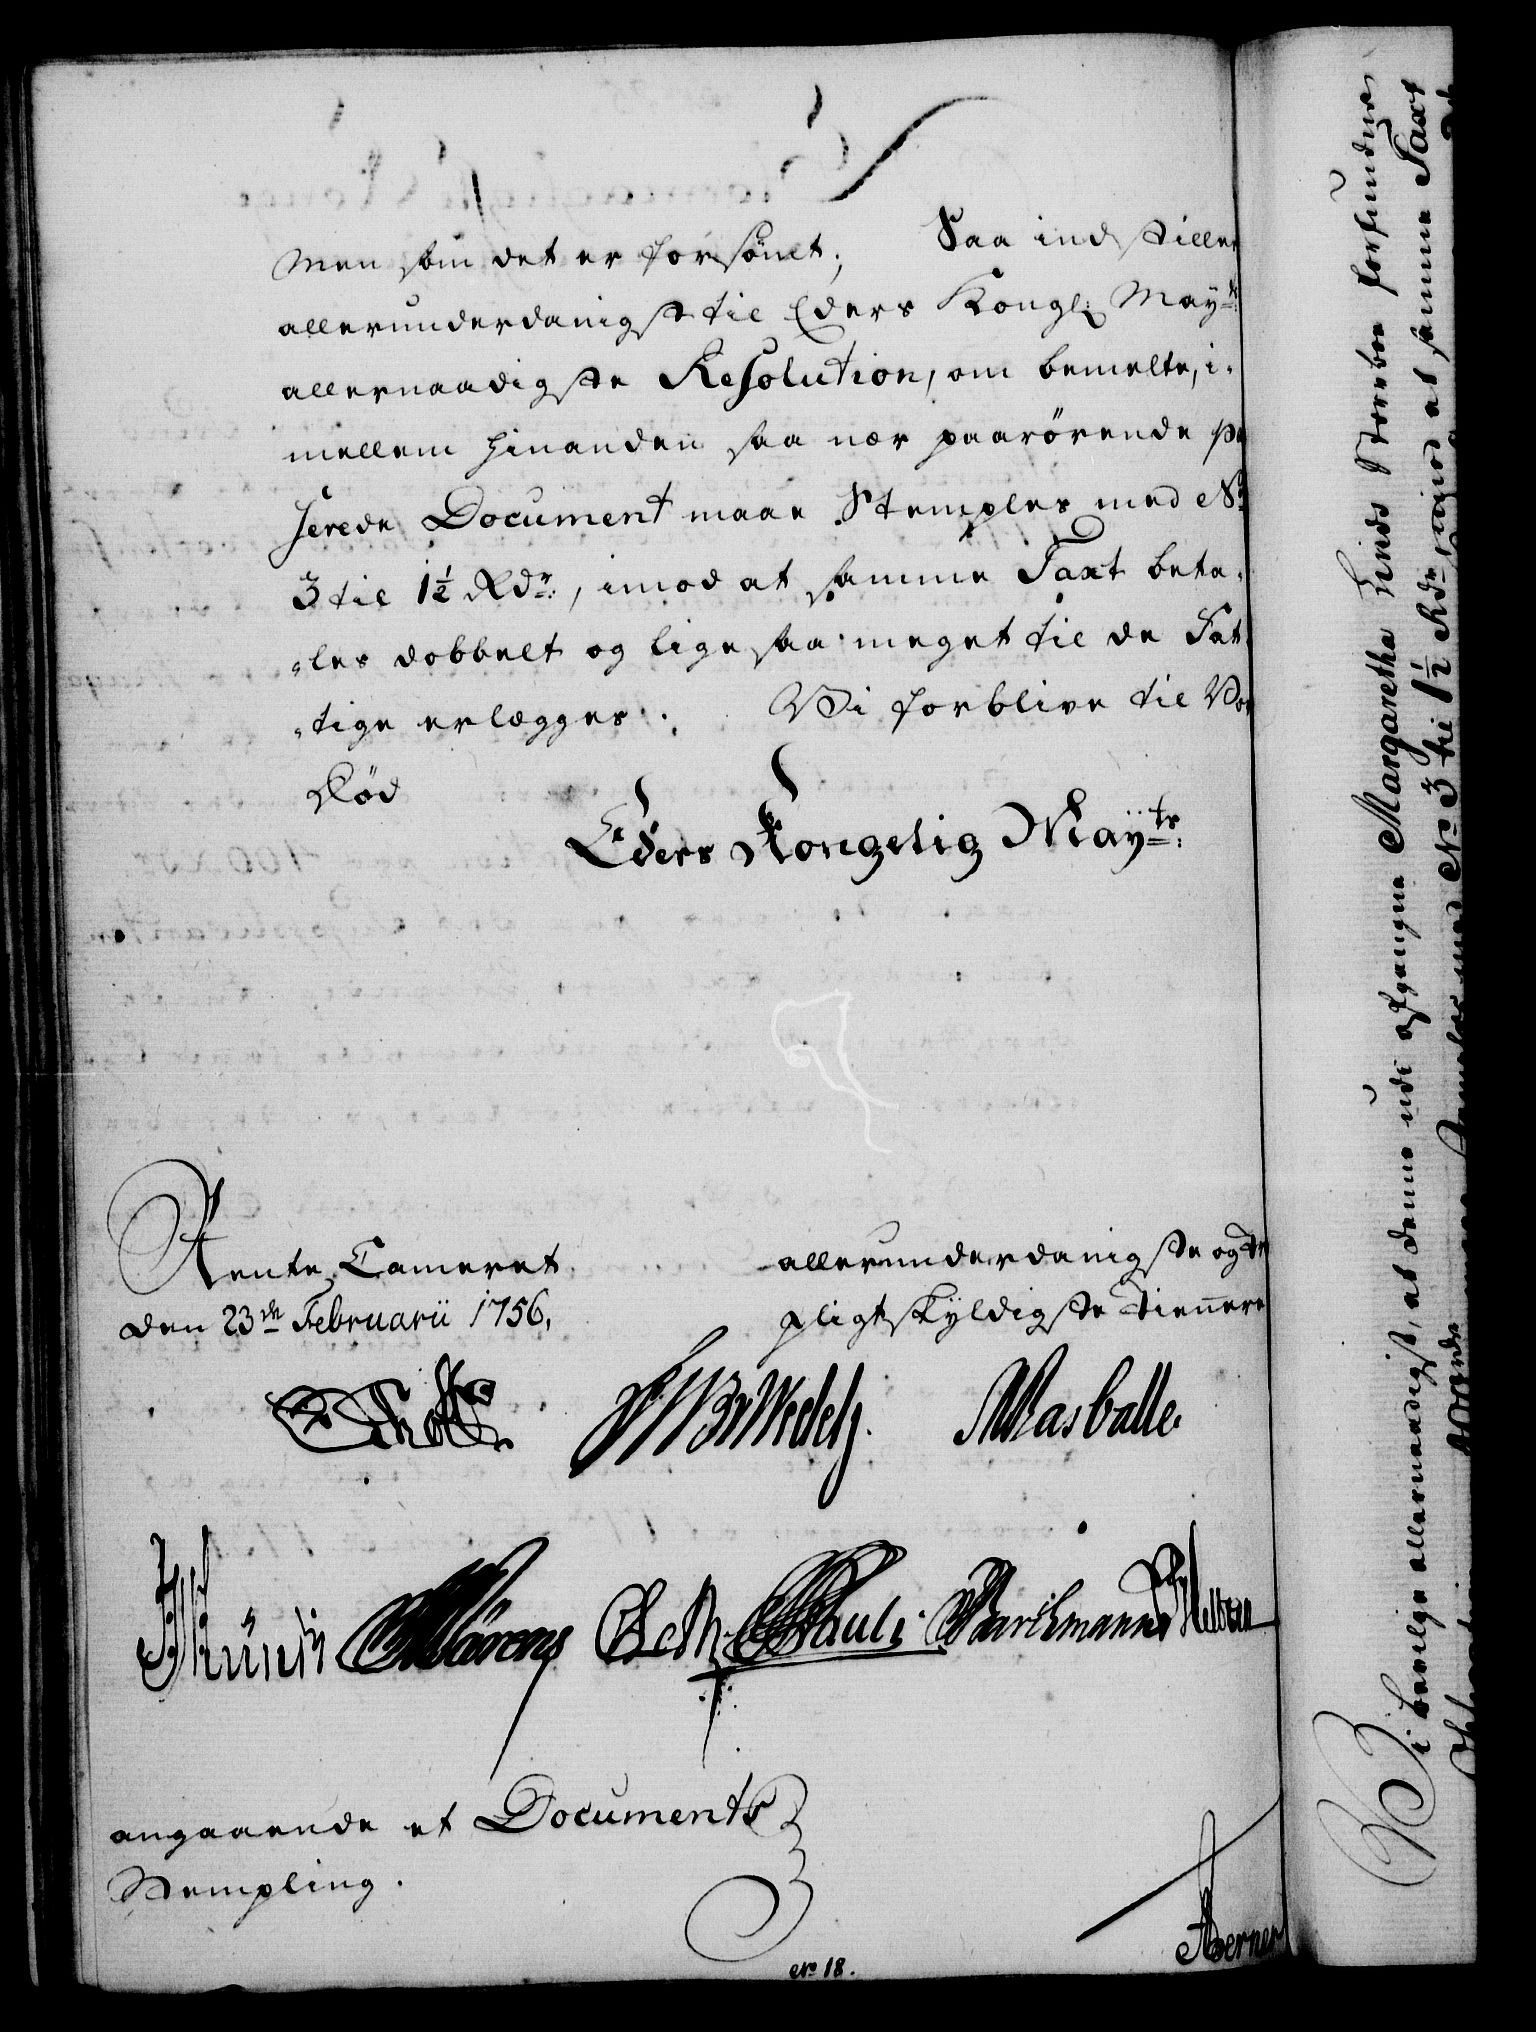 men som det er forsömt; Saa indstilles
allerunderdanigst til Eders Kongl: Mayts
allernaadigste Resolution, om bemelte, i-
mellem hinanden saa nær paarörende pa
serede Document maae Stemples med No
3 til 1½ Rdr:, imod at samme Taxt beta-
-les dobbelt og lige saa meget til de Fat-
-tige erlægges. Vi forblive til Vor
Död
Eders Kongelig Mayts:
Rente Cameret
den 23de Februarii 1756,
allerunderdanigste og
pligtskyldigste Tiennere
Wedel
Wasballe.
Mörens Pauli Barchmann
angaaende et Documents
Stempling.
No 18.
Berner
Vi bevilge allernaadigst, at denne udi afgangne Margaretha Finds Sterboe forfundne
No 3 til 1½ Rdr, imod at samme Taxt